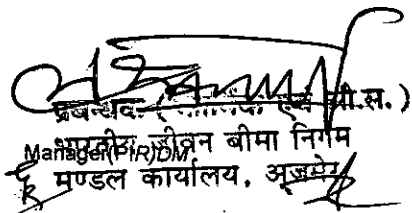 प्रबन्धक (
भारतीय जीवन बीमा निगम
Manager(PIR)DM
मण्डल कार्यालय, अजमेर